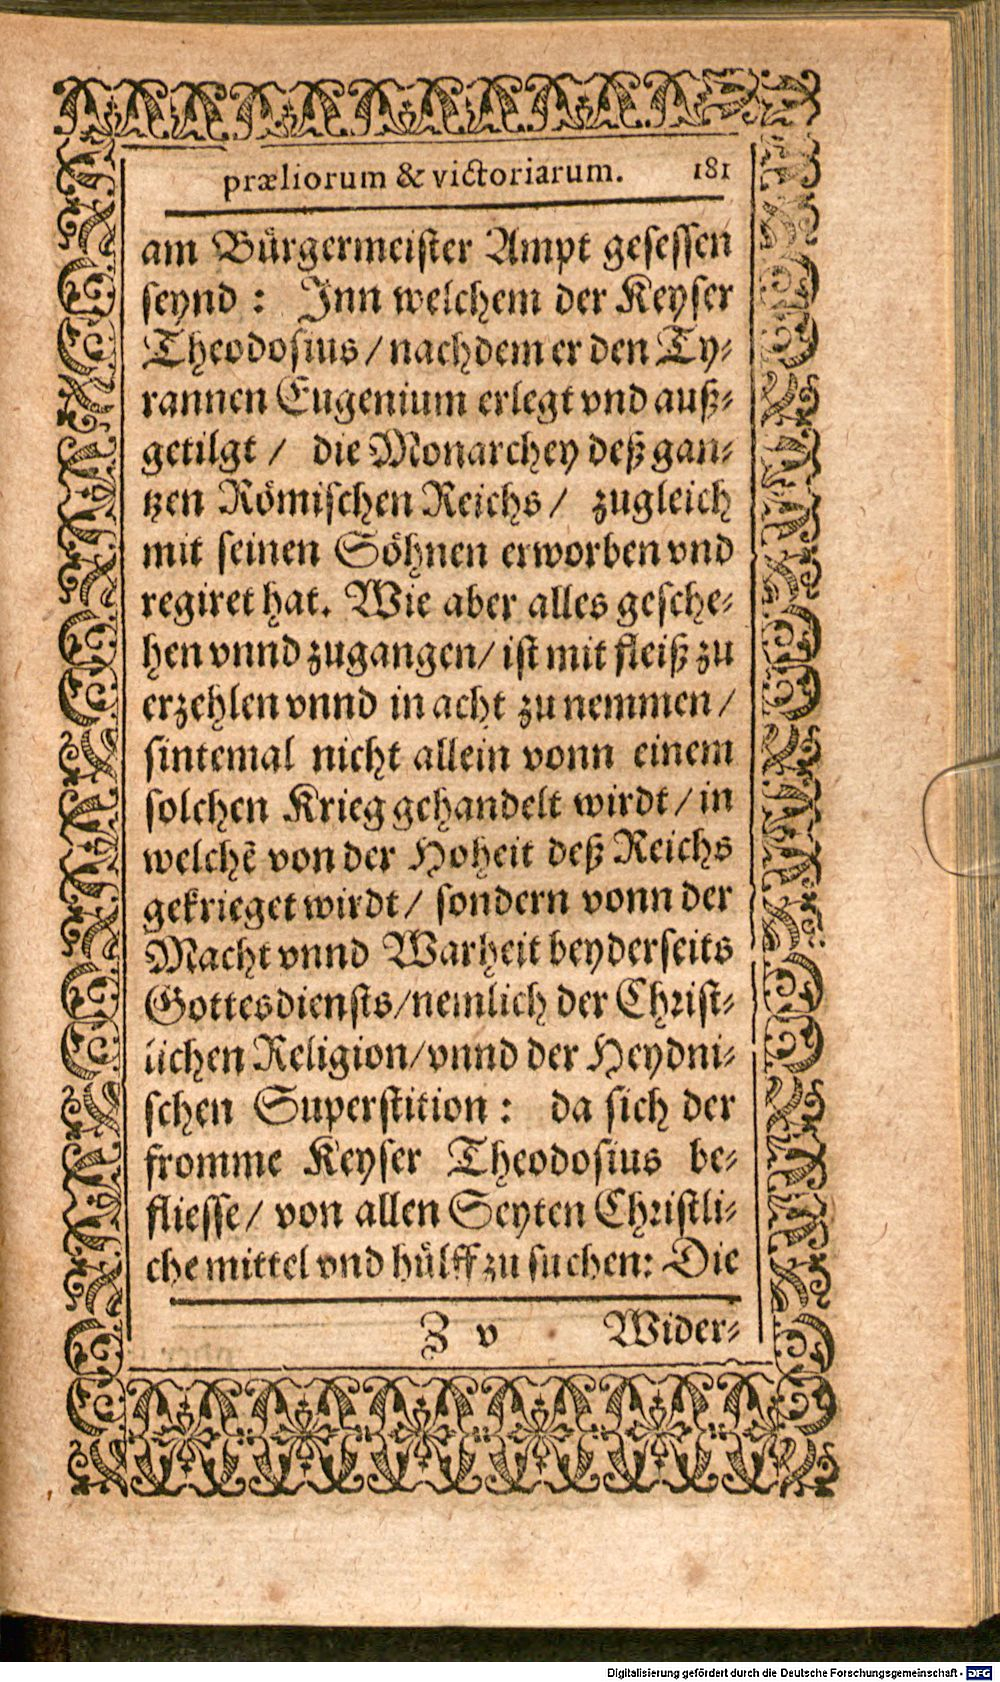 præliorum & victoriarum. 181
am Bürgermeister Ampt gesessen
seynd : Inn welchem der Keyser
Theodosius / nachdem er den Ty-
rannen Eugenium erlegt vnd auß-
getilgt / die Monarchey deß gan-
tzen Römischen Reichs / zugleich
mit seinen Söhnen erworben vnd
regiret hat. Wie aber alles gesche-
hen vnnd zugangen / ist mit fleiß zu
erzehlen vnnd in acht zu nemmen /
sintemal nicht allein vonn einem
solchen Krieg gehandelt wirdt / in
welchẽ von der Hoheit deß Reichs
gekrieget wirdt / sondern vonn der
Macht vnnd Warheit beyderseits
Gottesdiensts / nemlich der Christ-
lichen Religion / vnnd der Heydni-
schen Superstition : da sich der
fromme Keyser Theodosius be-
fliesse / von allen Seyten Christli-
che mittel vnd hülff zu suchen: Die
Z v Wider-
Digitalisierung gefördert durch die Deutsche Forschungsgemeinschaft - DFG